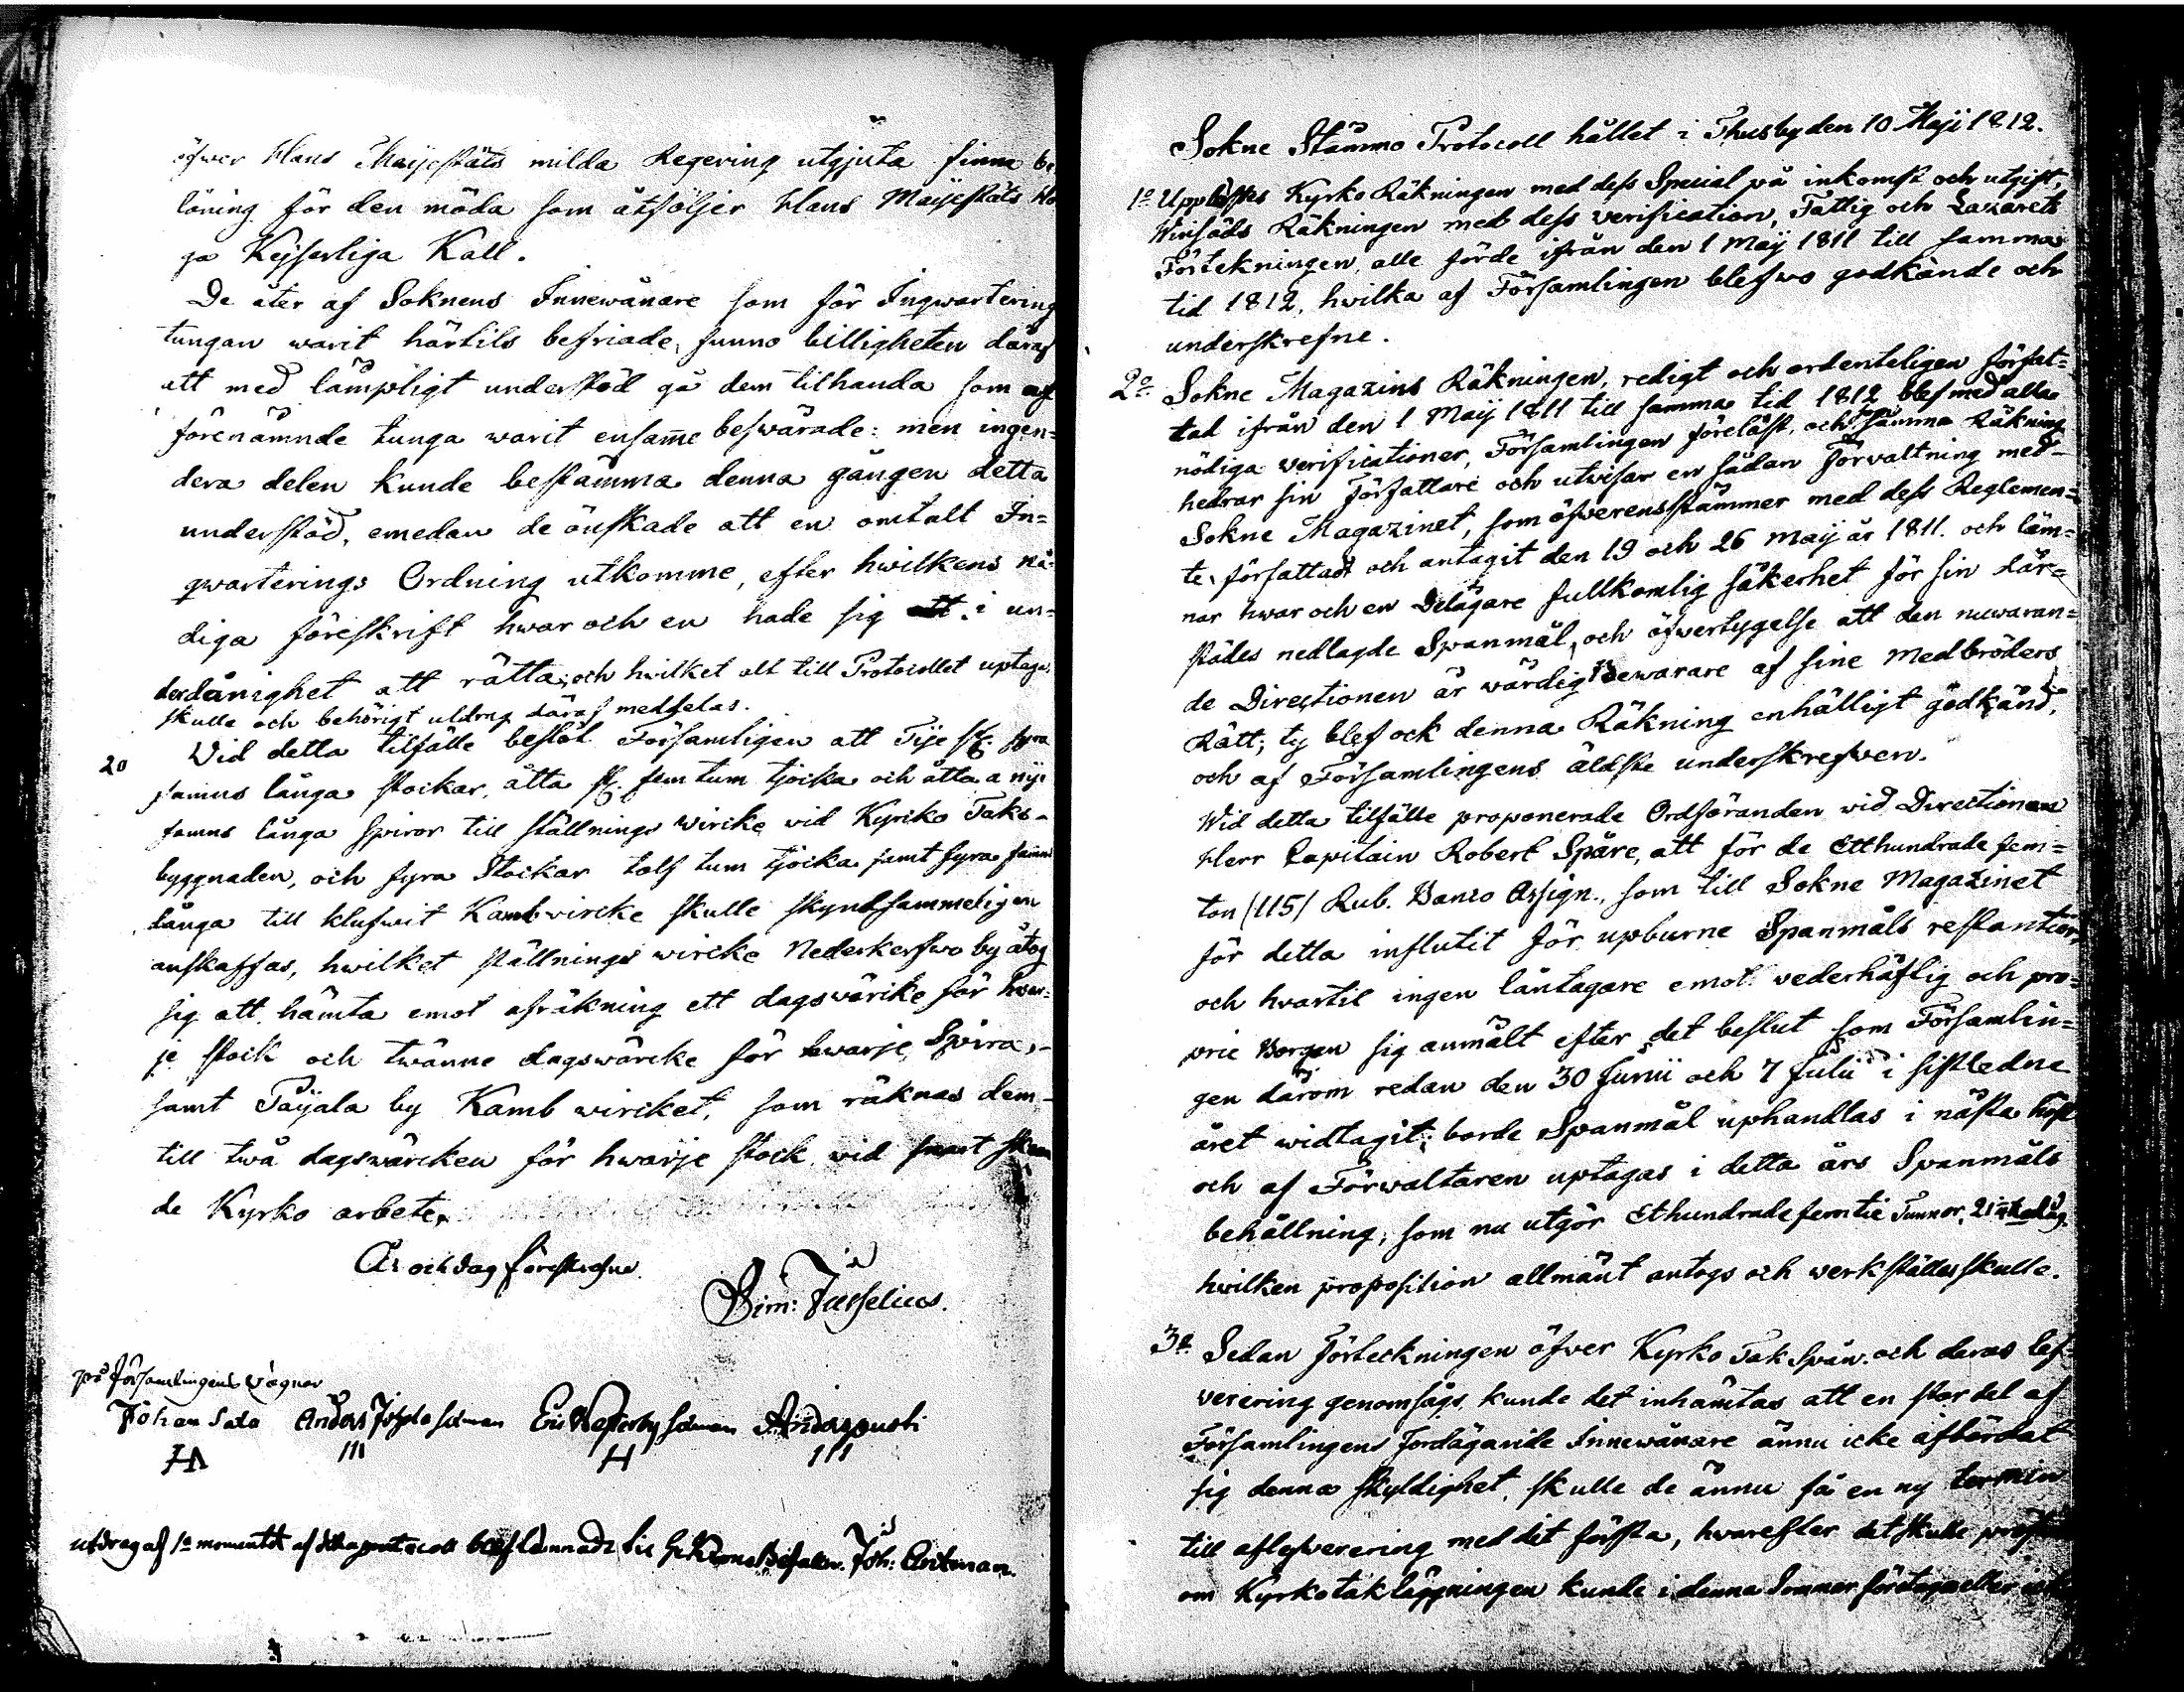 öfwer Hans Maijestäts milda Regering utgjuta finna be
löning för den möda som åtföljer Hans Maijestäts Hö
ga Kejserliga Kall.
De åter af Soknens Innewånare som för Inqwartering
tungan warit härtils befriade, funno billigheten däraf
att med lämpligt understöd gå dem tilhanda som af
förenämnde tunga warit ensam̄e beswärade: men ingen=
dera delen kunde bestämma denna gången detta
understöd, emedan de önskade att en omtalt In=
qwarterings Ordning utkomme, efter hwilkens nå=
diga föreskrift hwar och en hade sig i un=
derdånighet att rätta; och hwilket alt till Protocollet uptagas
skulle och behörigt utdrag däraf meddelas.
2o Wid detta tilfälle beslöt Församligen att Tije st. fyra
famns långa stockar, åtta st. fem tum tjocka och åtta a nije
famns långa spiror till ställnings wircke vid Kyrko Taks-
byggnaden, och fyra Stockar tolf tum tjocka samt fyra famns
långa till klufwit Kambvircke skulle skyndsammeligen
anskaffas, hwilket ställnings wircke Nederkerfwo by åtog
sig att hämta emot afräkning ett dagswärcke för hwar=
je stock och twänne dagswärcke för hwarje Spira,-
samt Paijala by Kamb wircket, som räknas dem-
till twå dagswärcken för hwarje stock wid
de Kyrko arbete.
År och dag föreskrefne
Sim: Juselius.
på församlingens wägnar
Johan Sata Anders Eric Anders
HA III H III
utdrag af 1o momentet af detta protocoll blef lämnadt Joh:
Sokne Stämmo Protocoll hållet i Thusby den 10 Maji 1812.
1o Upplästes Kyrko Räkningen med dess Special på inkomst och utgift,
Winsäds Räkningen med dess verification, Fattig och Lazarets
Förtekningen, alle förde ifrån den 1 Maij 1811 till samma
tid 1812, hwilka af Församlingen blefwo godkände och
underskrefne.
2o Sokne Magazins Räkningen, redigt och ordenteligen författ=
tad ifrån den 1 Maij 1811 till samma tid 1812 blef med alla
nödiga verificationer, Församlingen föreläst, och som samma Räkning
hedrar sin Författare och utwisar en sådan förvaltning med-
Sokne Magazinet, som öfwerensstämmer med dess Reglemen=
te, författadt och antagit den 19 och 26 Maij år 1811. och läm=
nar hwar och en Delägare fullkomlig säkerhet för sin där=
städes nedlagde Spanmål, och öfwertygelse att den nuwaran=
de Directionen är wärdig Bewarare af sine Medbröders
Rätt; ty blef ock denna Räkning enhälligt godkänd,
och af Församlingens äldste underskrefwen.
Wid detta tilfälle proponerade Ordföranden wid Directionen
Herr Capitain Robert Spåre, att för de Etthundrade fem=
ton (115) Rub. Banco Assign., som till Sokne Magazinet
för detta influtit för upburne Spanmåls restantier,
och hvartil ingen låntagare emot wederhäftig och pro=
prie Borgen sig anmält efter det beslut som Församlin=
gen därom redan den 30 Junii och 7 Julii i sistledne
året widtagit; borde Spanmål uphandlas i nästa höst
och af Förwaltaren uptagas i detta års Spanmåls
behållning, som nu utgör Ethundrade femtie Tunnor, 21
hwilken proposition allmänt antogs och werkställas skulle.
3o Sedan Förteckningen öfver Kyrko Tak Spån och deras lef=
verering genomsågs, kunde det inhämtas att en stor del af
Församlingens Jordägande Innewånare ännu icke afbördat
sig denna skyldighet, skulle de ännu få en ny termin
till aflefwerering med det första, hwarefter det skulle pröfwas
om Kyrkotakläggningen kunde i denna Sommar företagas eller icke